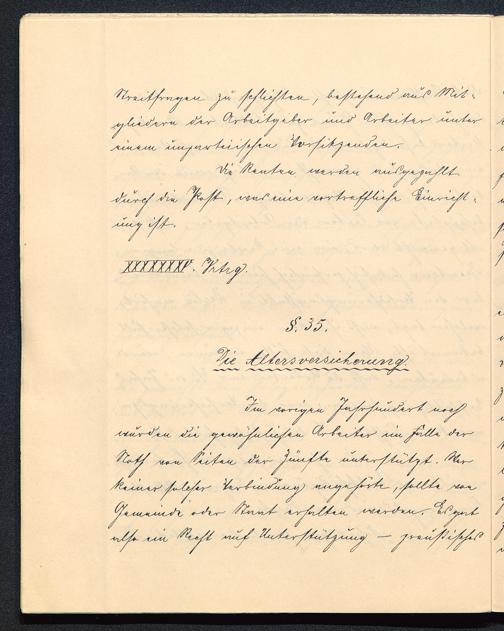 Streitfragen zu schlichten, bestehend aus Mit-
gliedern der Arbeitgeber und Arbeiter unter
einem unparteiischen Vorsitzenden.
Die Renten werden ausgezahlt
durch die Post, was eine vortreffliche Einricht-
ung ist.
XXXXXXXV. Vtrg.
§. 35.
Die Altersversicherung.
Im vorigen Jahrhundert noch
wurden die gewöhnlichen Arbeiter im Falle der
Noth von Seiten der Zünfte unterstützt. Wer
keiner solcher Verbindung angehörte, sollte von
Gemeinde oder Staat erhalten werden. Es gab
also ein Recht auf Unterstützung — preußisches